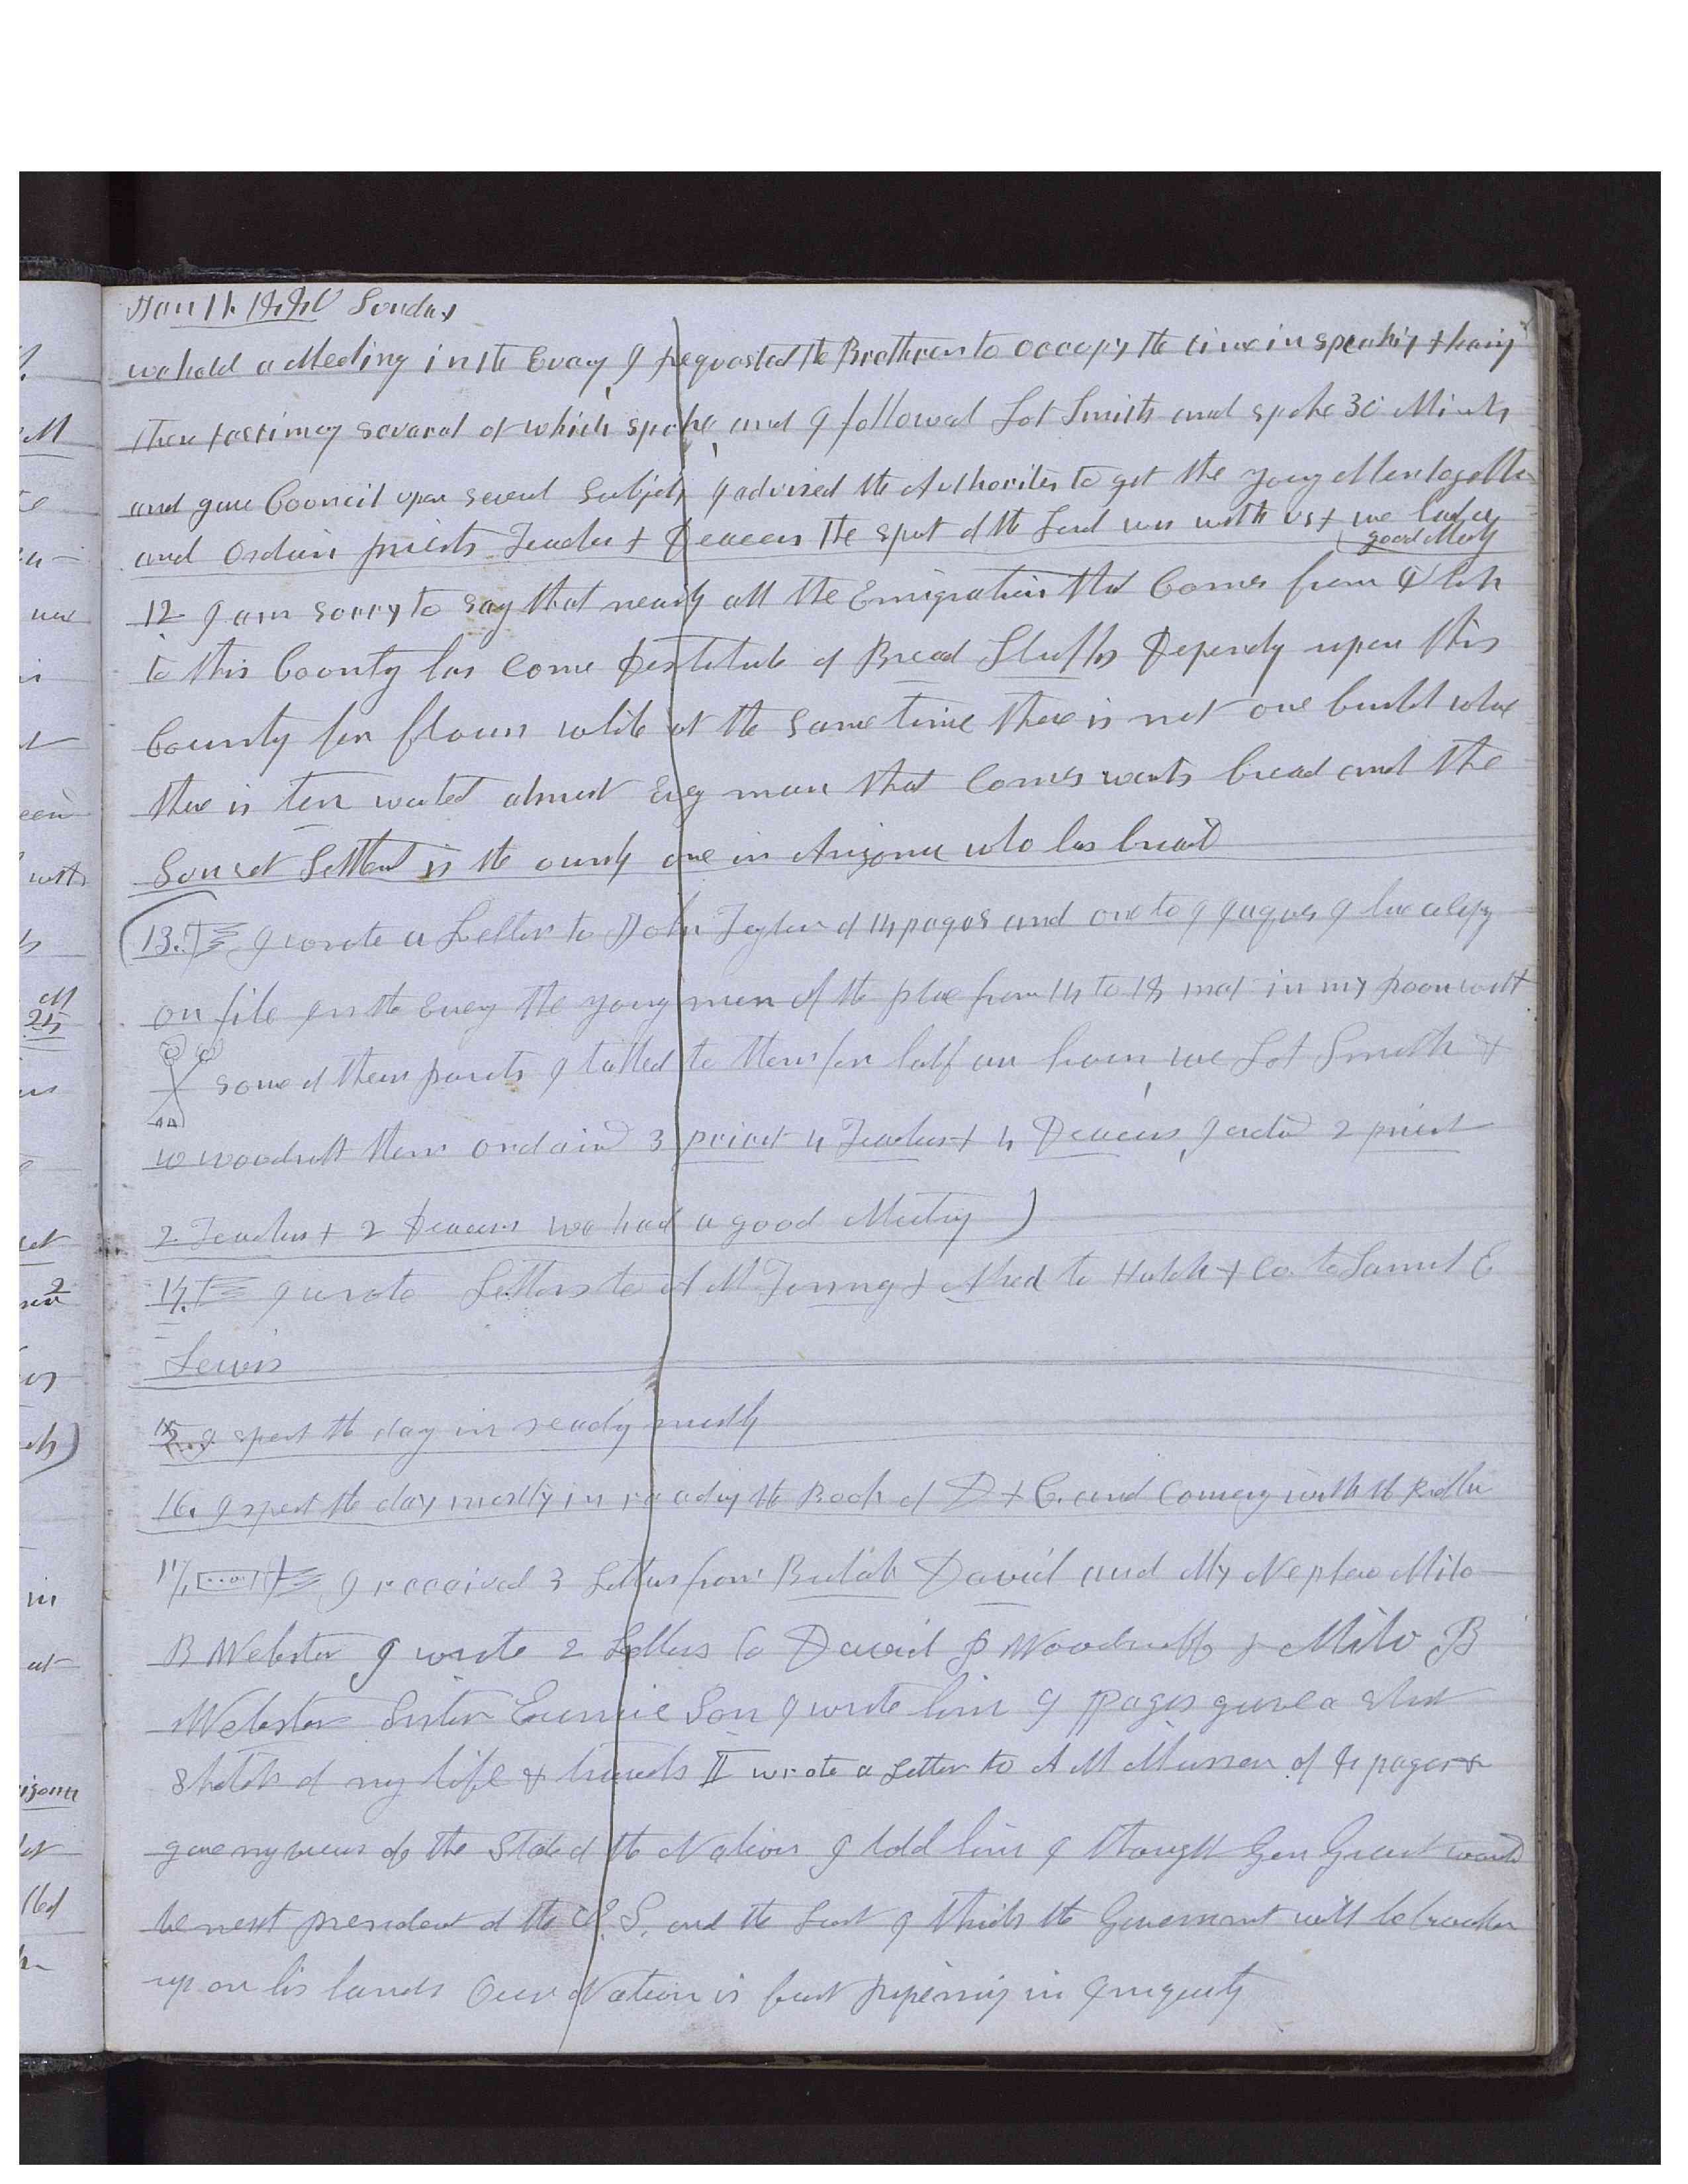 Jan 11. 1880 Sunday
we held a Meeting in the Eveng I requested the Brethren to occupy the time in speaking & bearing
their testimony several of which spoke, and I followed Lot Smith and spoke 30 Minuts
and gave Council upon several Subjets I advised the Authorites to get the young Men together
and Ordain priests Teachers & Deacons The spirit of the Lord was with us & we had a
good Meetg
12 I am sorry to say that nearly all the Emigration that Comes from Utah
to this County has Come Destitute of Bread Stuffs Dependg upon this
County for flour while at the same time there is not one bushel where
there is ten wanted almost Evry man that Comes wants bread and the
Sunset Settlemt is the ownly one in Arizona who has bread
13. I wrote a Letter to John Taylor of 14 pages and one to 9 pages I have a copy
on file In the Eveng the young men of the place from 14 to 18 met in my room with
some of their parents I talked to them for half an hour, we Lot Smith &
W Woodruff then ordaind 3 priest 4 Teachers & 4 Deacons, I ordaind 2 priest
2 Teachers & 2 Deacons we had a good Meeting )
14. I wrote Letters to A M Tenny & to Hatch & Co. to Samuel E
Lewis
15 I spent the day in readg mostly
16. I spent the day mostly in reading the Book of D & C. and Conversing with the
17, I received 3 Letters from Bulah David and My Nephew Milo
B Webster I wrote 2 Letters to David P Woodruff & Milo B
Webster Sister Eunice Son I wrote him 9 pages gave a short
sketch of my life & travels II wrote a Letter to A M Musser of 4 pages &
gave my views of the State of the Nation I told him I thought Gen Grant would
be next president of the U. S. and the Last I think the Government will be broaken
up on his hands Our Nation is fast ripening in Iniquity